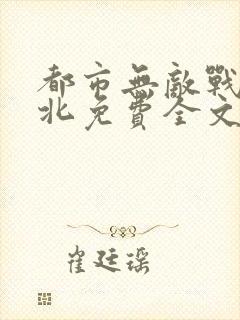 都市無敵戰
北免費全文
崔廷瑶